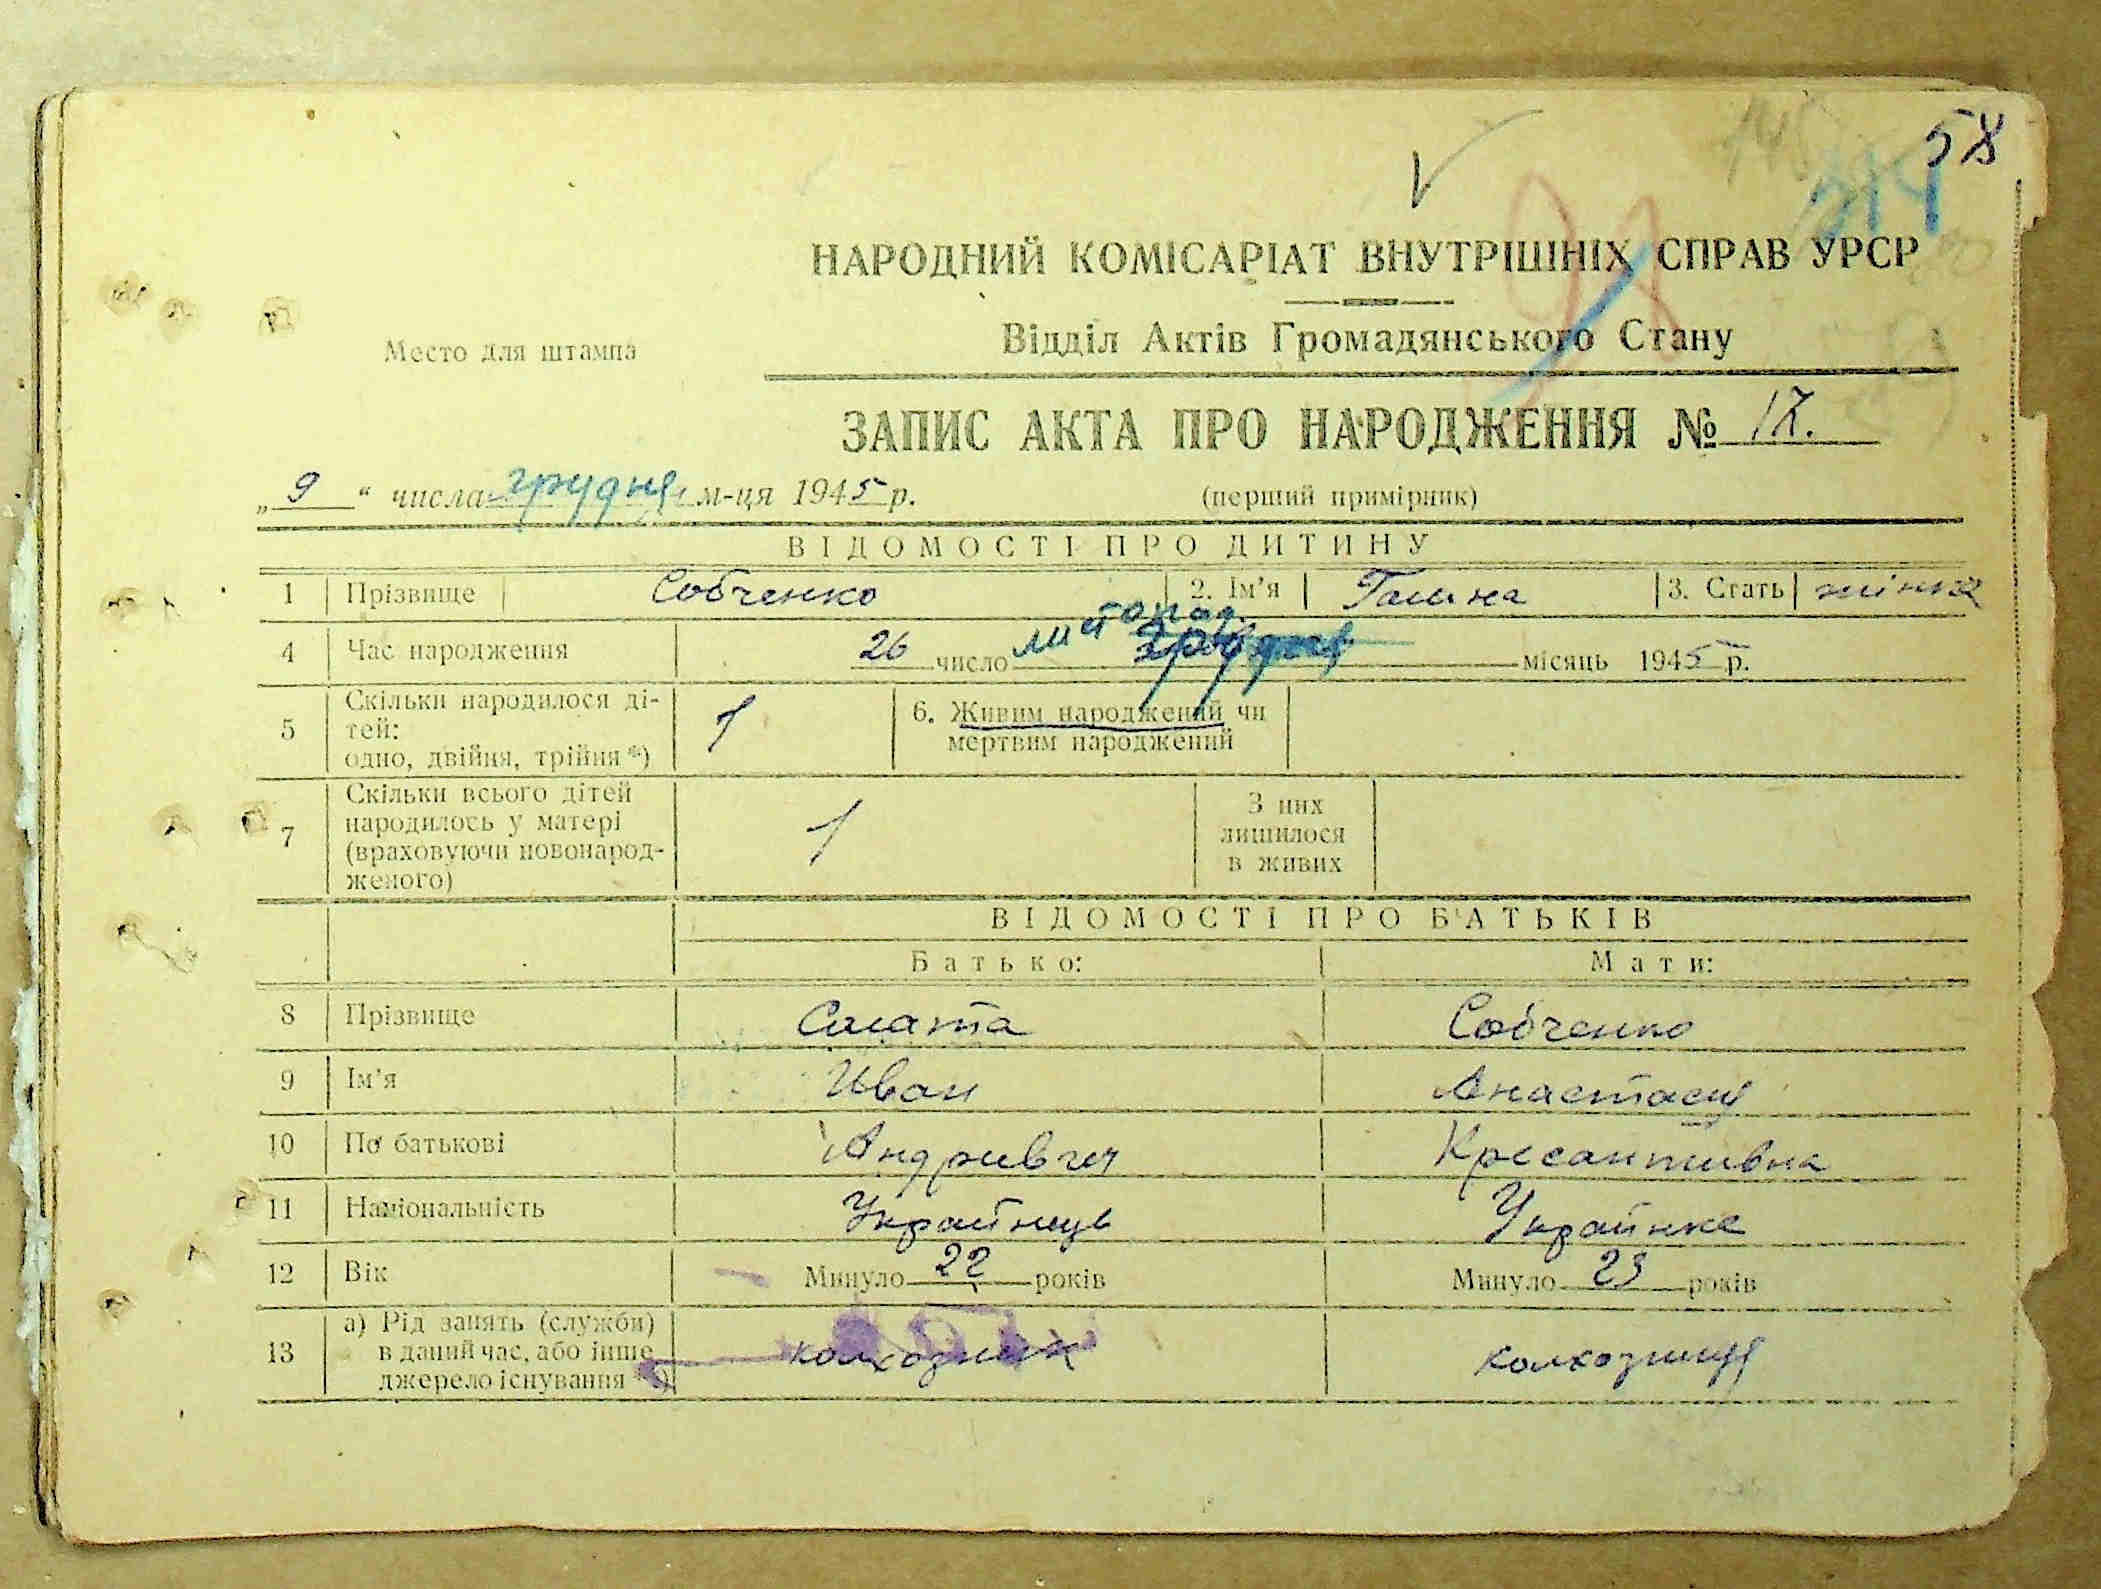 58
НАРОДНИЙ КОМІСАРІАТ ВНУТРІШНІХ СПРАВ УРСР
Відділ Актів Громадянського Стану
Место для штампа
ЗАПИС АКТА ПРО НАРОДЖЕННЯ № 17.
„ 9 “ числа грудня м-ця 1945 р. (перший примірник)
ВІДОМОСТІ ПРО ДИТИНУ
1 Прізвище Собченко 2. Ім’я Галина 3. Стать жінка
листопад
4 Час народження 26 число грудня місяць 1945 р.
5 Скільки народилося ді-
тей:
одно, двійня, трійня *) 1 6. Живим народжений чи
мертвим народжений
7 Скільки всього дітей
народилось у матері
(враховуючи новонарод-
женого) 1 З них
лишилося
в живих
ВІДОМОСТІ ПРО БАТЬКІВ
Батько: Мати:
8 Прізвище Салата Собченко
9 Ім’я Иван
10 По батькові Андривич Кресантивна
11 Національність Украйнець Украйнка
12 Вік Минуло 22 років Минуло 23 років
13 а) Рід занять (служби)
в даний час, або інше
джерело існування колхозник колхозниця